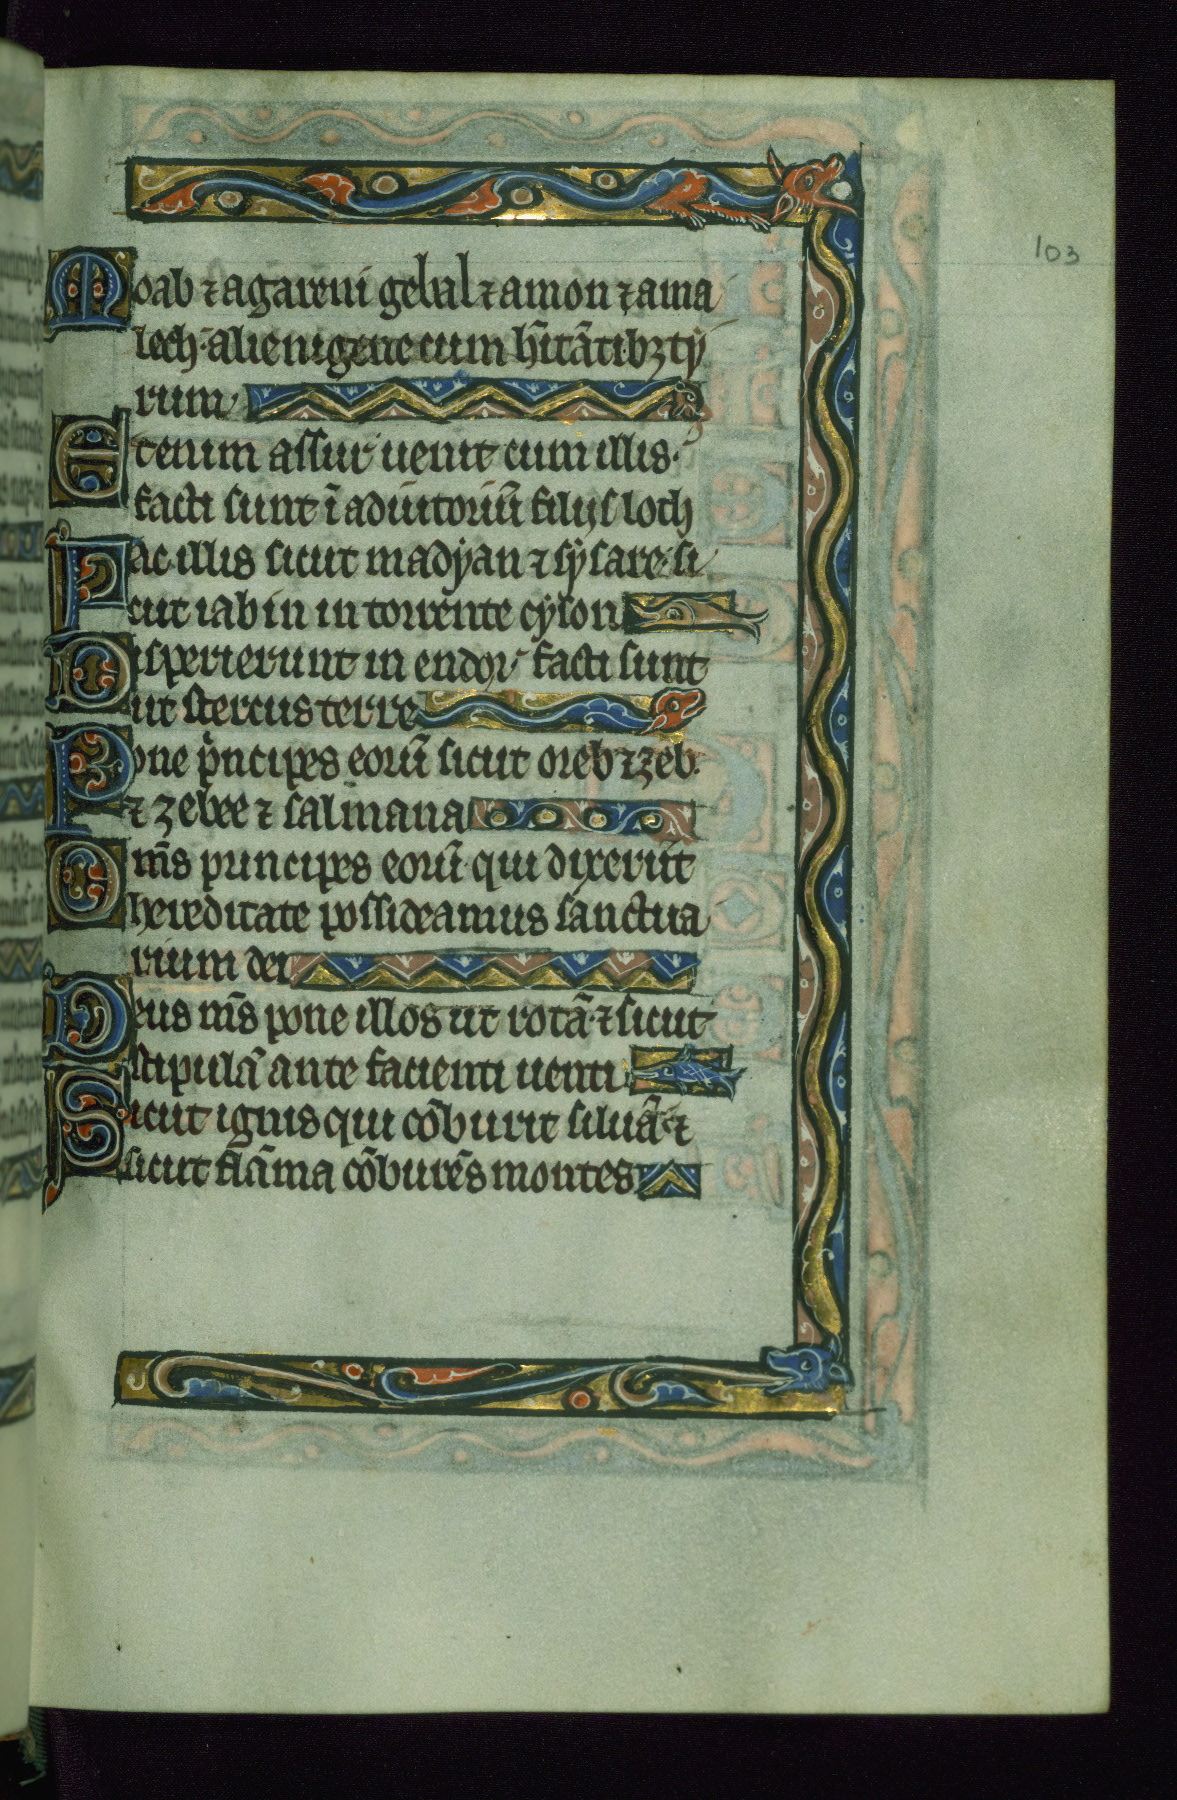 103
Moab ⁊ agareni gebal ⁊ amon ⁊ ama
lech· alienigene cum hītātibꝫ tẏ
rum
Etenim assur uenit cum illis·
facti sunt ī adiutoriū filijs loth
Fac illis sicut madẏan ⁊ sẏsare· si
cut iabin in torrente cẏson
Disperierunt in endor facti sunt
ut stercus terre
Pone p̄ncipes eorū sicut oreb ⁊ zeb·
⁊ zebee ⁊ salmana
Om̄s principes eorū· qui dixerūt
hereditate possideamus sanctua
rium dei
Deus m̄s pone illos ut rotā· ⁊ sicut
stipulā ante facienti uenti
Sicut ignis qui cōburit siluā· ⁊
sicut flāma cōburēs montes